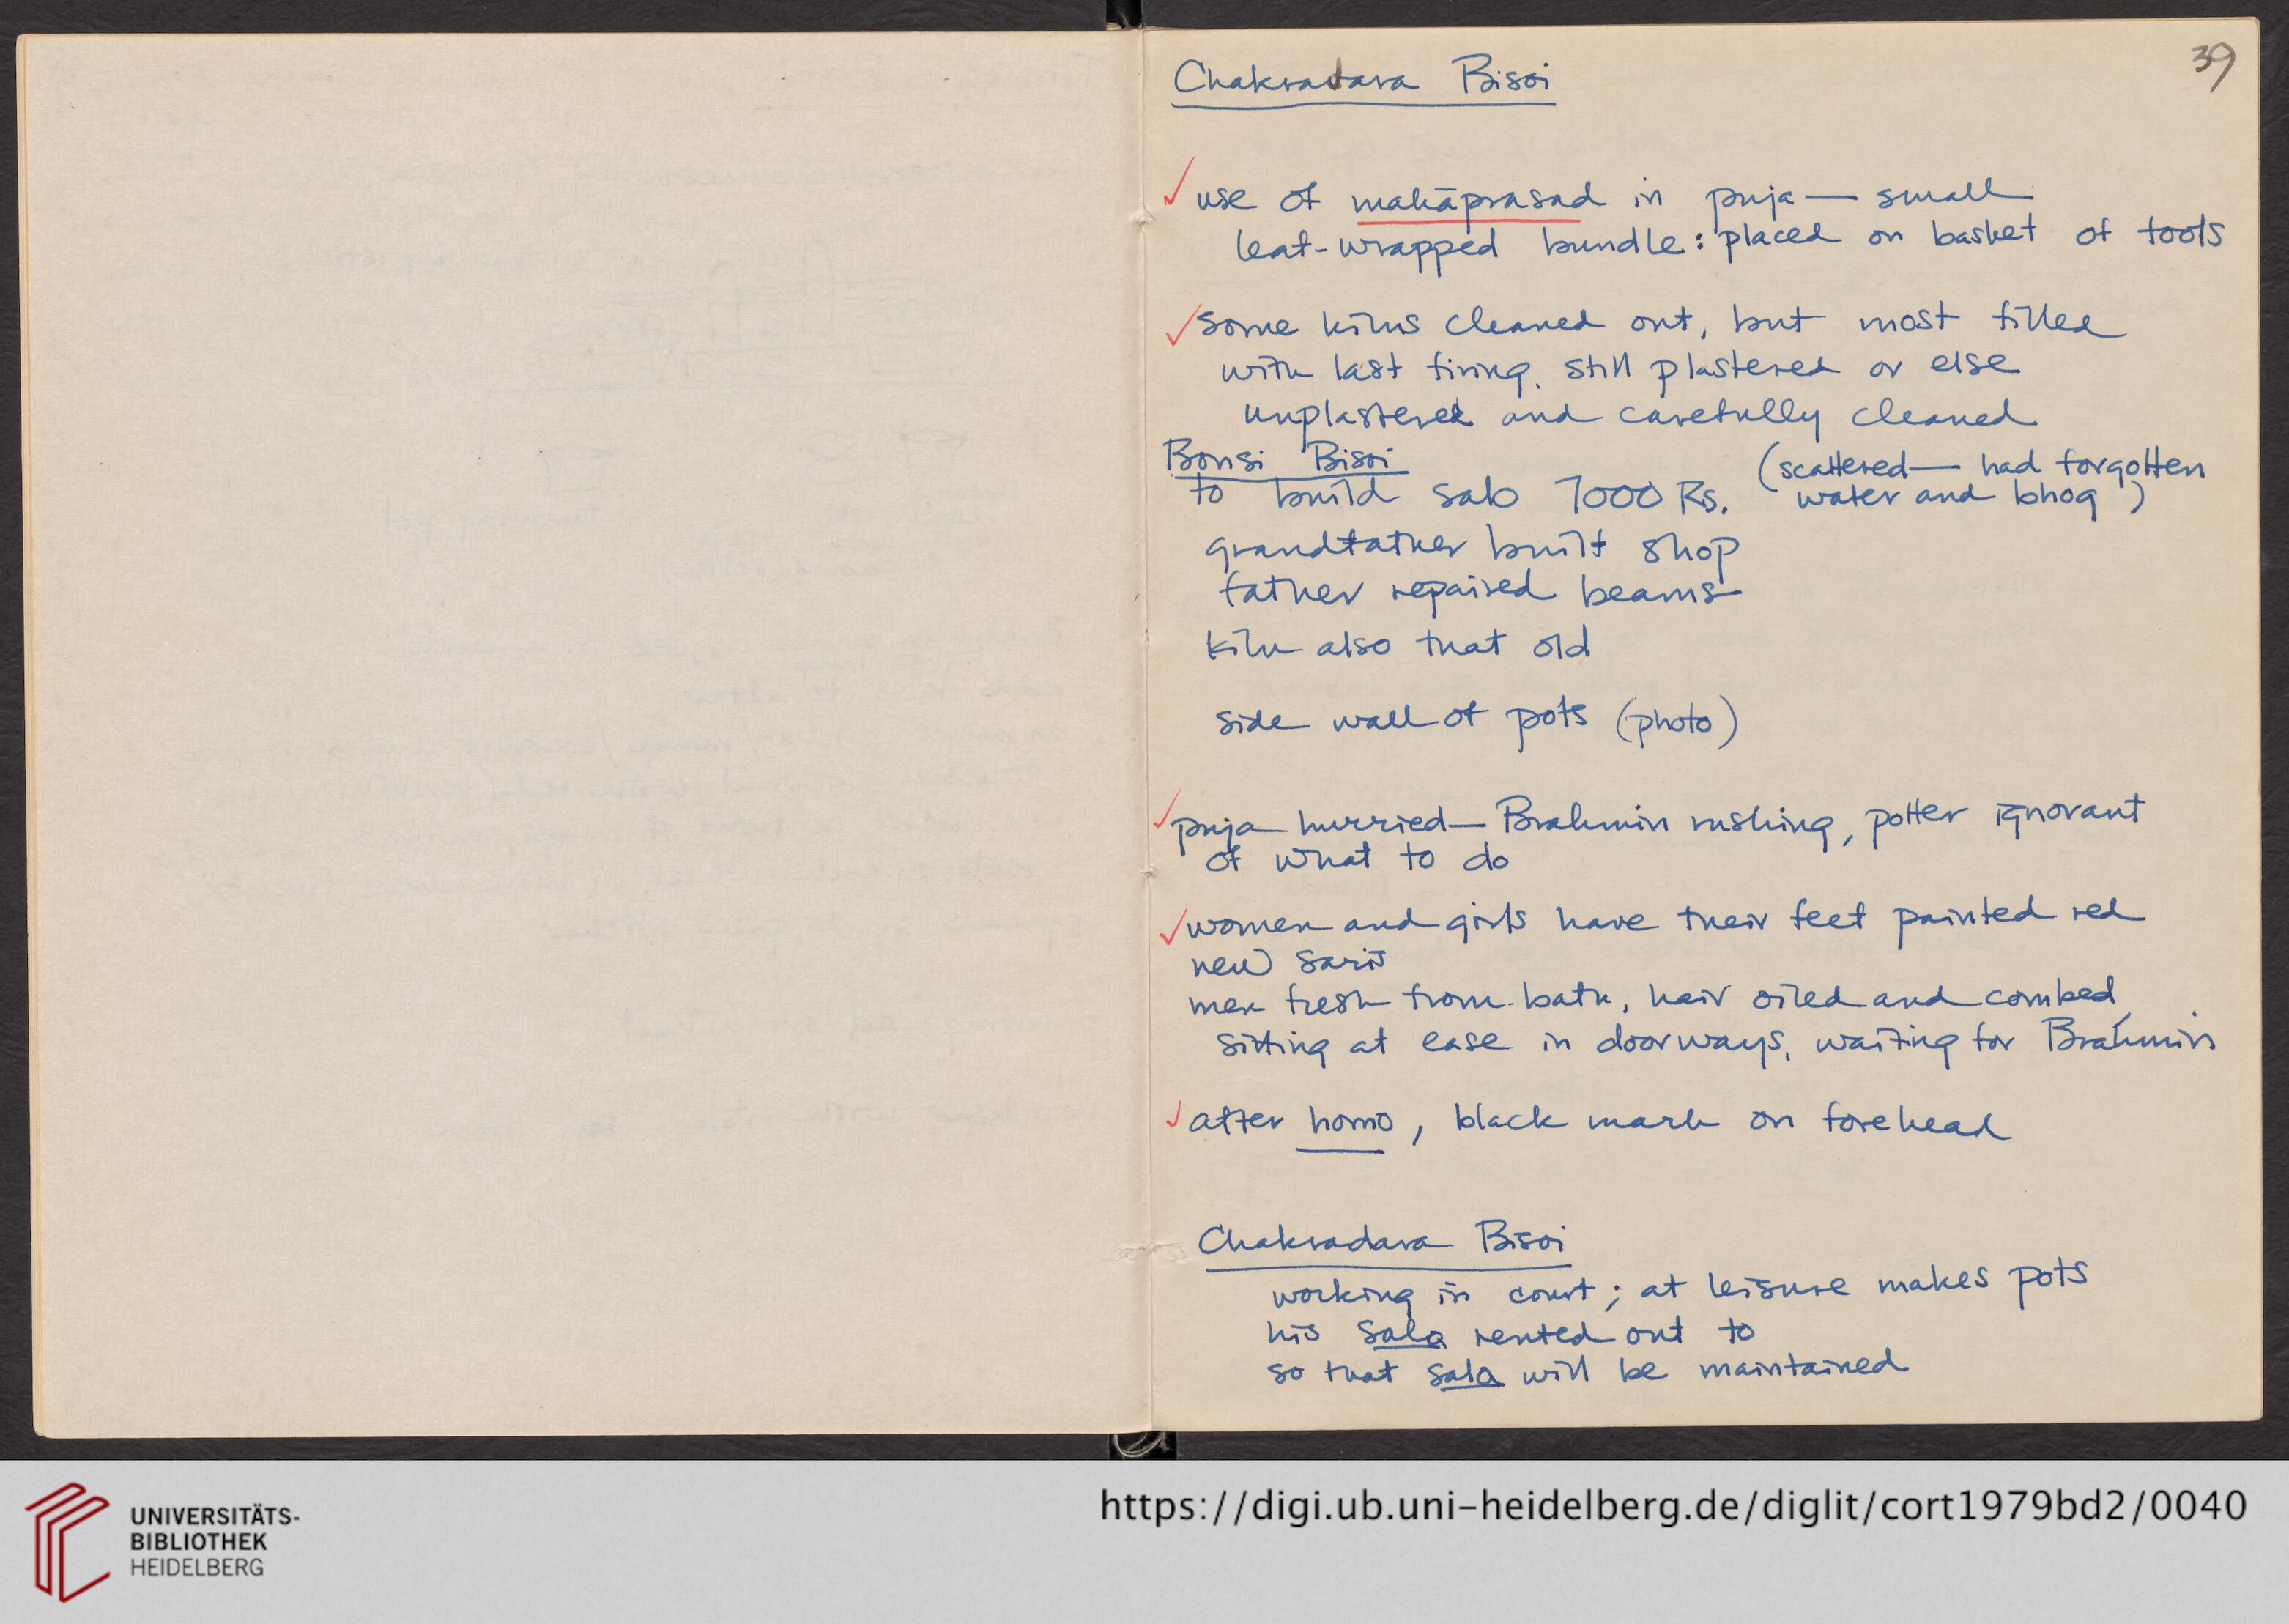 39
Chakradara Bisoi
✓ use of mahāprasad in puja — small
leaf-wrapped bundle: placed on basket of tools
✓ some kilns cleaned out, but most filled
with last firing, still plastered or else
unplastered and carefully cleaned
Bonsi Bisoi
(scattered — had forgotten
water and bhog)
to build salo 7000 Rs.
grandfather built shop
father repaired beams
kiln also that old
side wall of pots (photo)
✓ puja hurried — Brahmin rushing, potter ignorant
of what to do
✓ women and girls have their feet painted red
new saris
men fresh from bath, hair oiled and combed,
sitting at ease in doorways, waiting for Brahmin
✓ after homo, black mark on forehead
Chakradara Bisoi
working in court; at leisure makes pots
his sala rented out to
so that sala will be maintained
UNIVERSITÄTS-
BIBLIOTHEK
HEIDELBERG
https://digi.ub.uni-heidelberg.de/diglit/cort1979bd2/0040